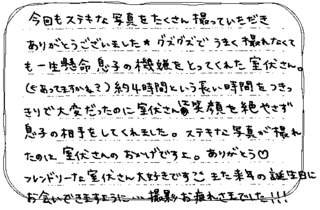 今回もステキな写真をたくさん撮っていただき
ありがとうございました★グズグズでうまく撮れなくて
も一生懸命息子の機嫌をとってくれた室伏さん。
(←あってますかね?)約4時間という長い時間をつきっ
きりで大変だったのに室伏さん皆笑顔を絶やさず
息子の相手をしてくれました。ステキな写真が撮れ
たのは室伏さんのおかげですよ。ありがとう♡
フレンドリーな室伏さん大好きです また来年の誕生日に
お会いできますように…撮影お疲れさまでした!!!